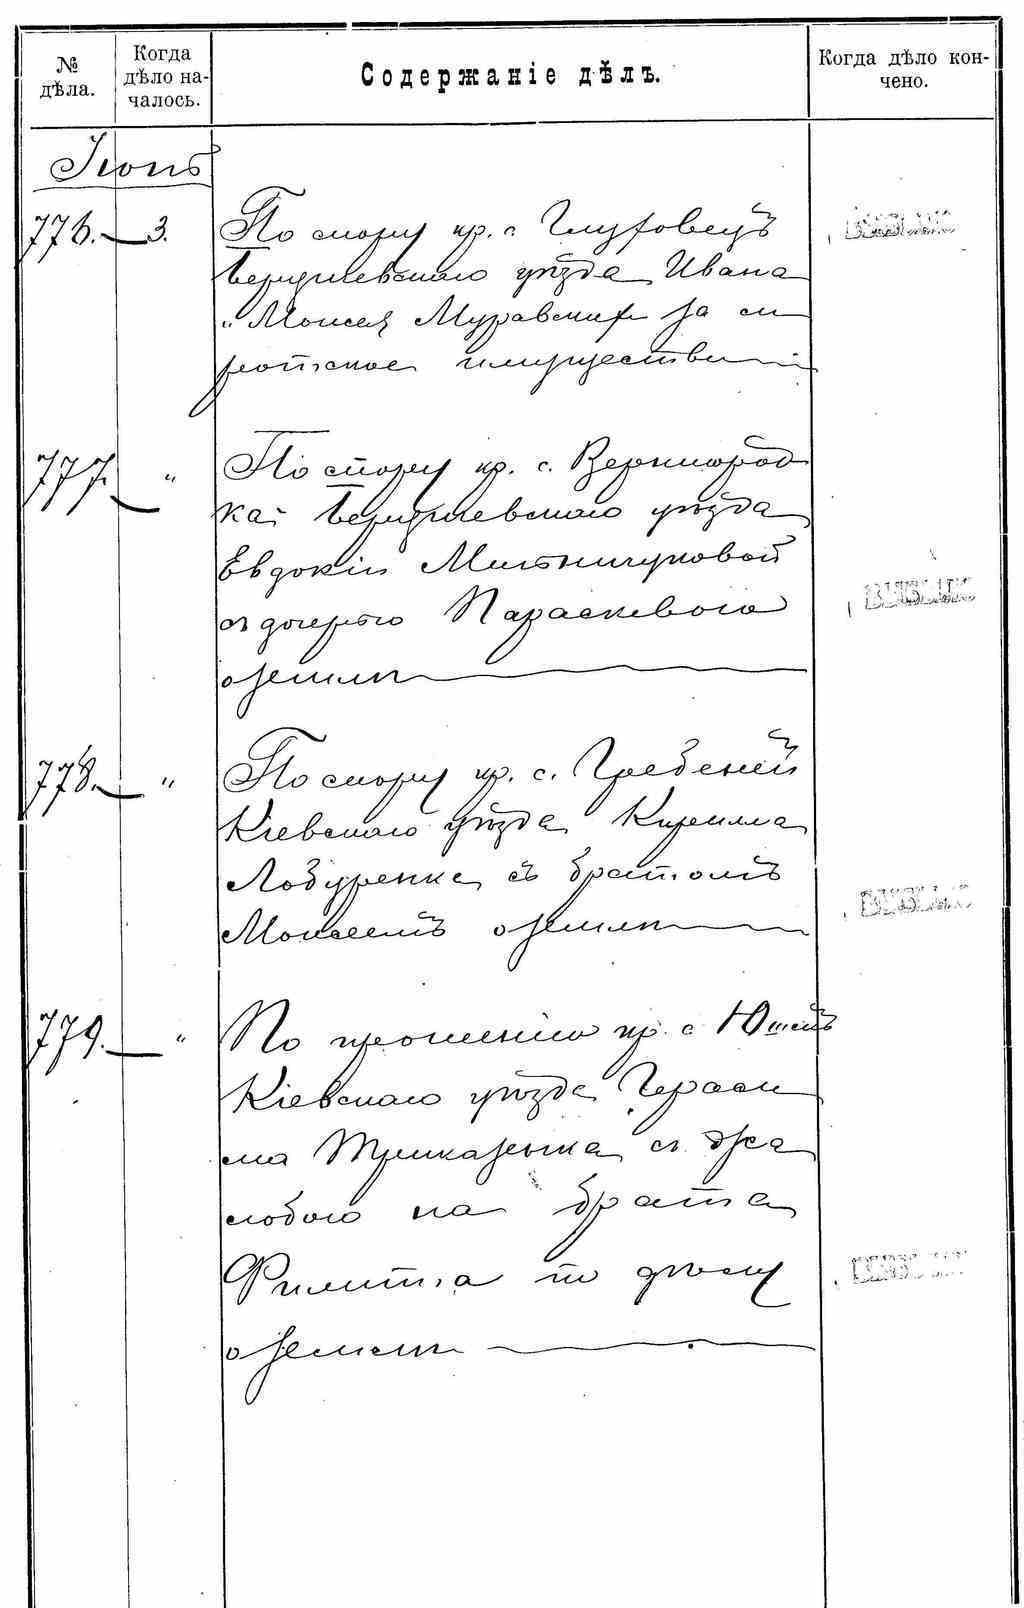 № дѣла.
Когда дѣло началось.
Содержаніе дѣлъ.
Когда дѣло кончено.
Іюнь
776. 3. По спору кр. с. Глуховецъ
Бердичевскаго уѣзда Ивана
и Моисея Муравскихъ за си
ротское имущество
777. " По спору кр. с. Вернигород
ка Бердичевскаго уѣзда
Евдокіи Мельничуковой
съ дочерью Параскевою
о землѣ
778. " По спору кр. с. Гребеней
Кіевскаго уѣзда Кирилла
Лобуренка съ братомъ
Моисеемъ о землѣ
779. " По прошенію кр. с.
Кіевскаго уѣзда Гераси
ма съ жа
лобою на брата
Филиппа по дѣлу
о землѣ